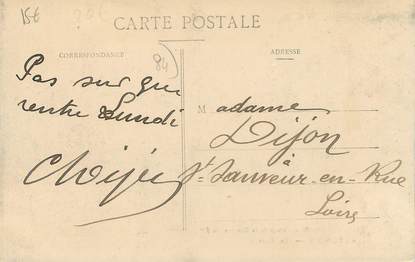 15€
CARTE POSTALE
CORRESPONDANCE
ADRESSE
84
Pas sur que
rentre Lundi
Madame
Dijon
à
St Sauveur-en-Rue
Loire